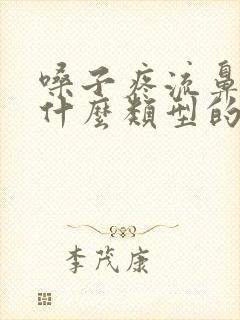 嗓子疼流鼻
什麼類型的
李茂康